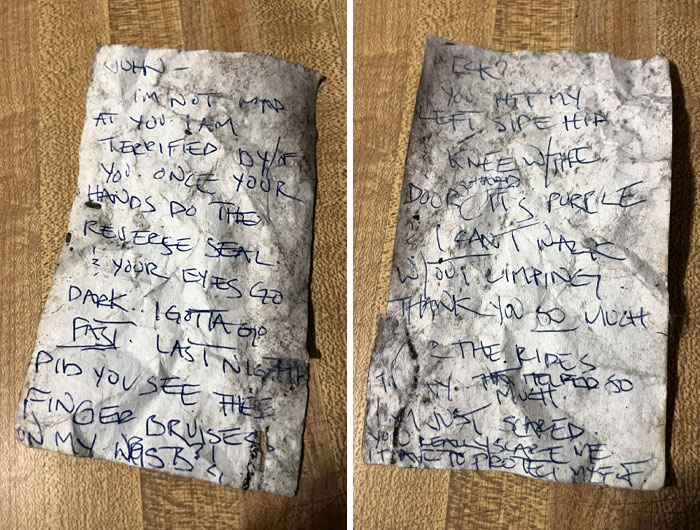 JOHN –
I'M NOT MAD
AT YOU. I AM
TERRIFIED BY/OF
YOU. ONCE YOUR
HANDS DO THE
REVERSE SEAL
& YOUR EYES GO
DARK.. I GOTTA GO
FAST. LAST NIGHT
DID YOU SEE THE
FINGER BRUISES
ON MY
& NECK?
YOU HIT MY
LEFT SIDE HIP
& KNEE W/THE
DOOR IT'S PURPLE
& I CAN'T WALK
W/OUT LIMPING
THANK YOU SO MUCH
THE RIDES
THEY HELPED SO
MUCH.
I'M JUST SCARED.
YOU REALLY SCARE ME
I HAVE TO PROTECT MYSELF